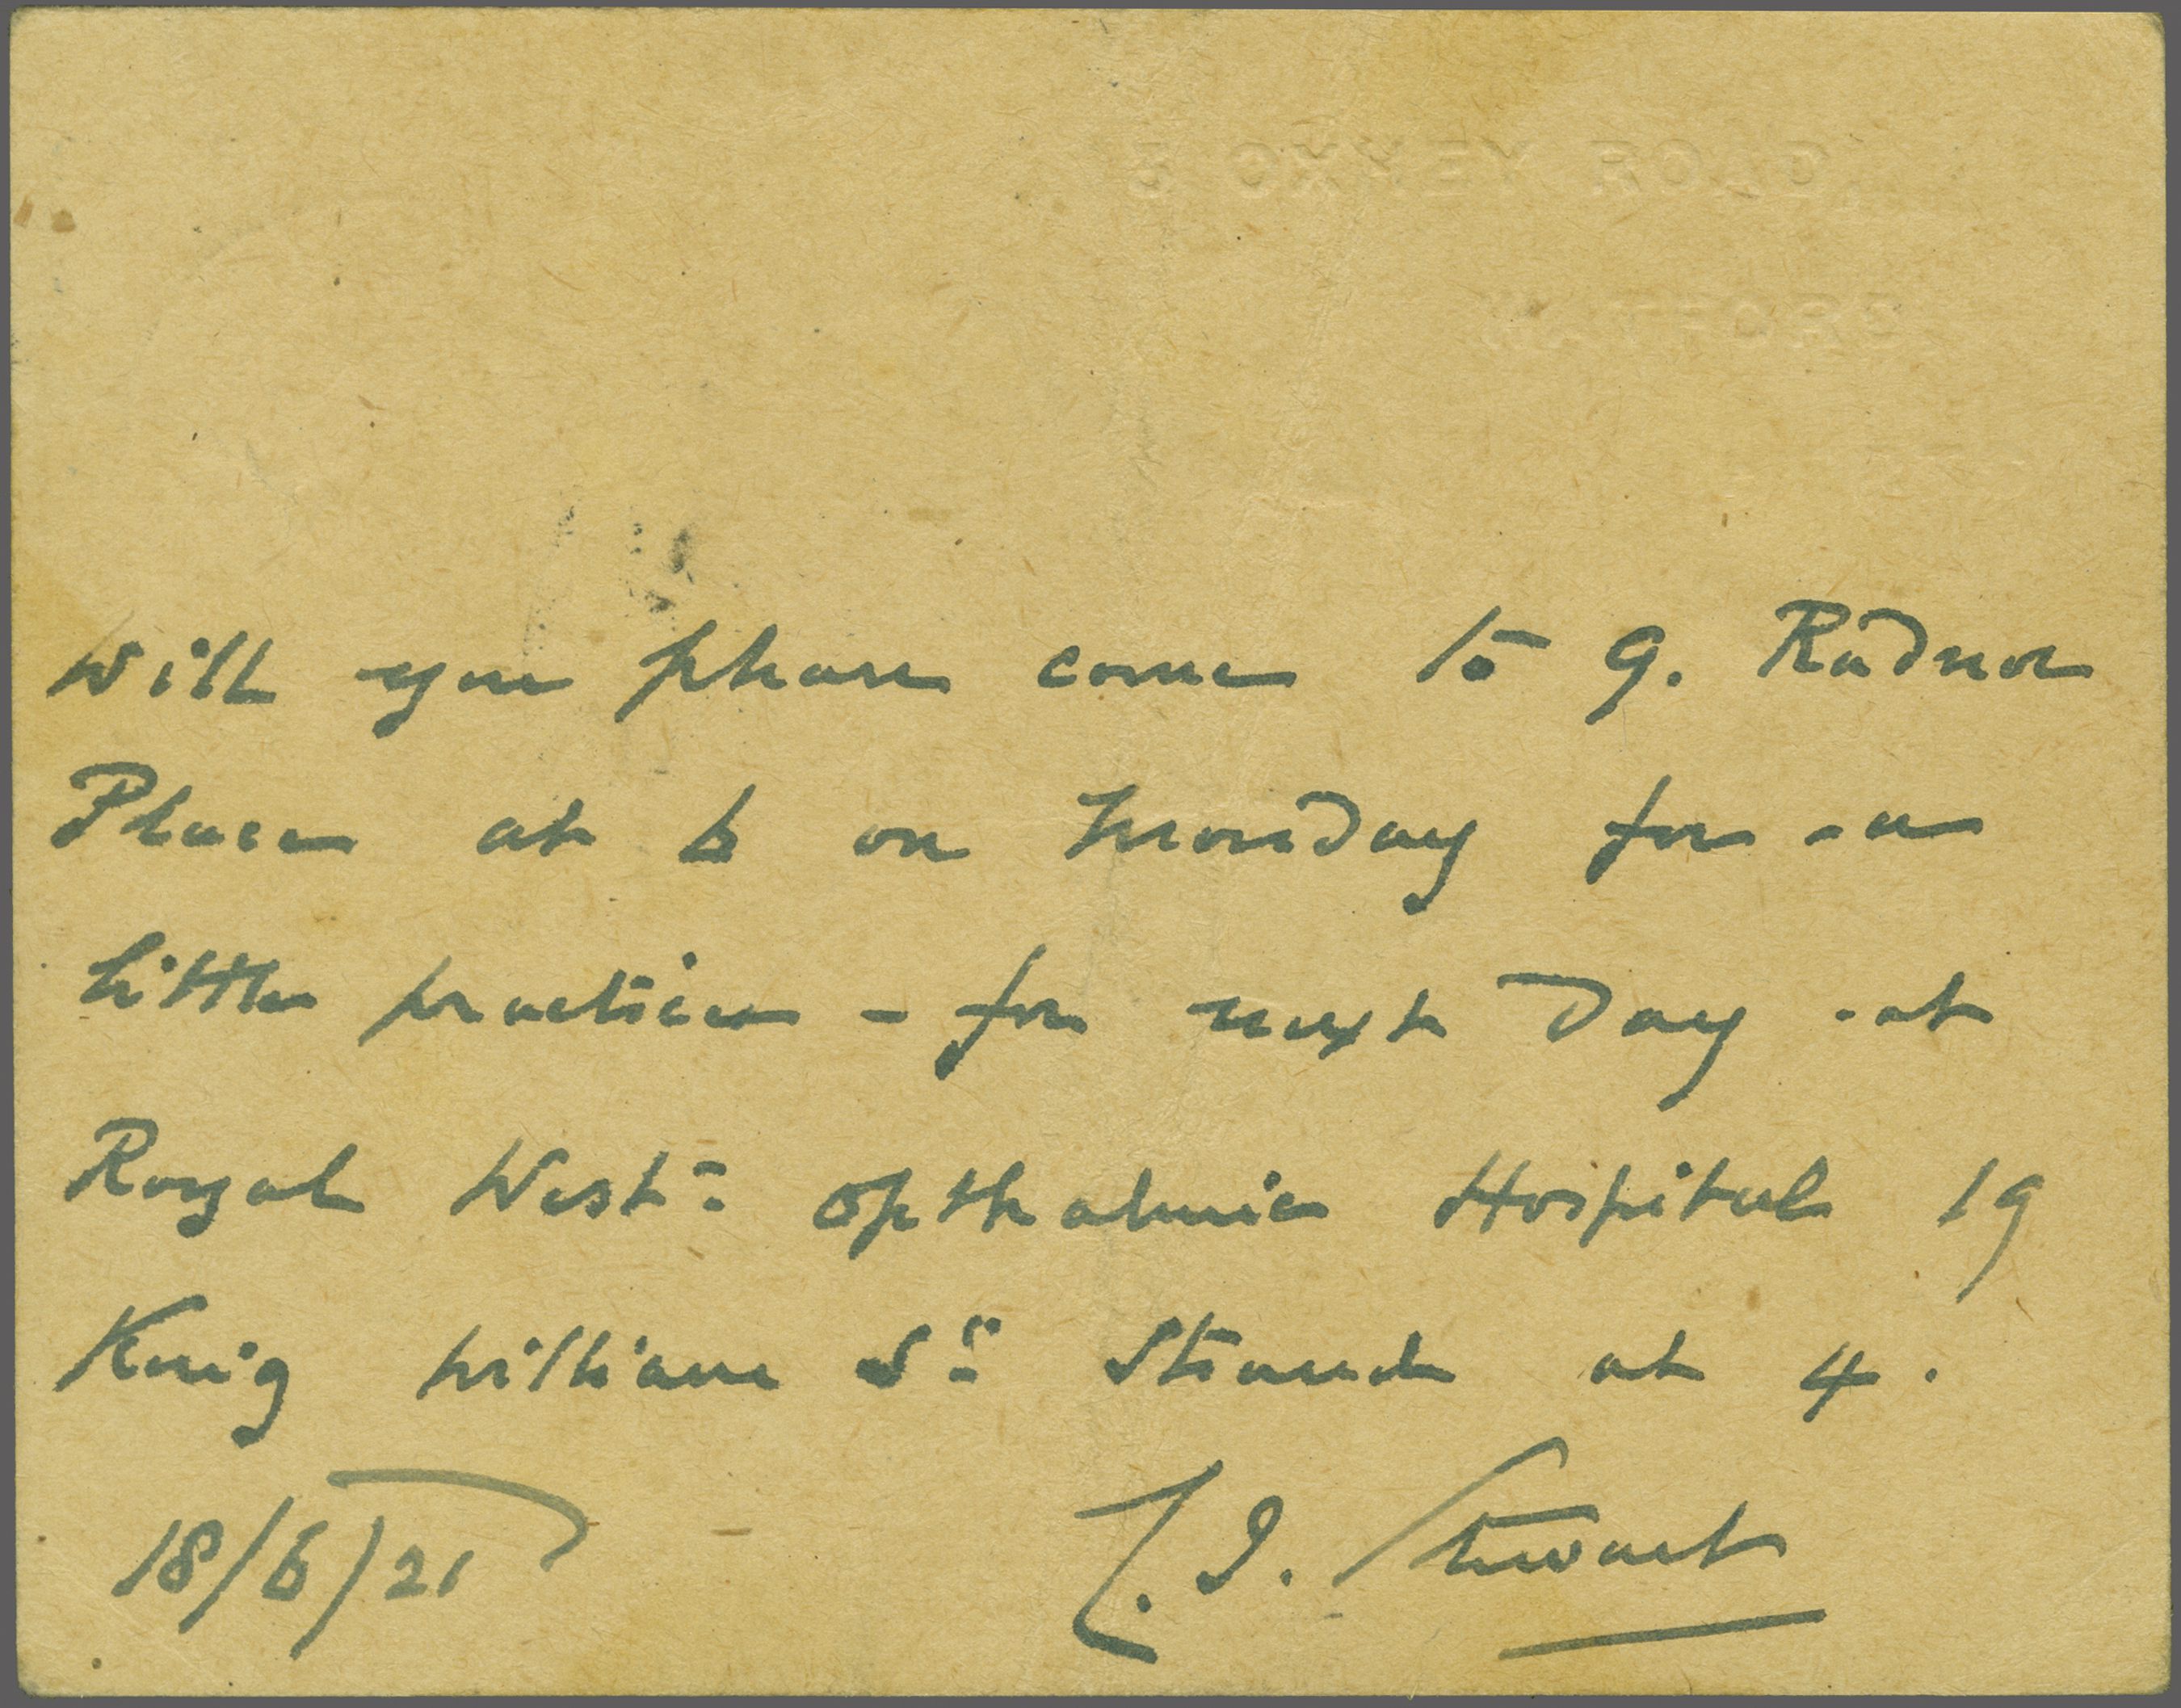 8 OXHEY ROAD,
WATFORD.
Will you please come to 9. Radnor
Place at 6 on Monday for a
little practice - for next day at
Royal West: Opthalmic Hospital 19
King William St: Strand at 4.
18/6/21 Stewart